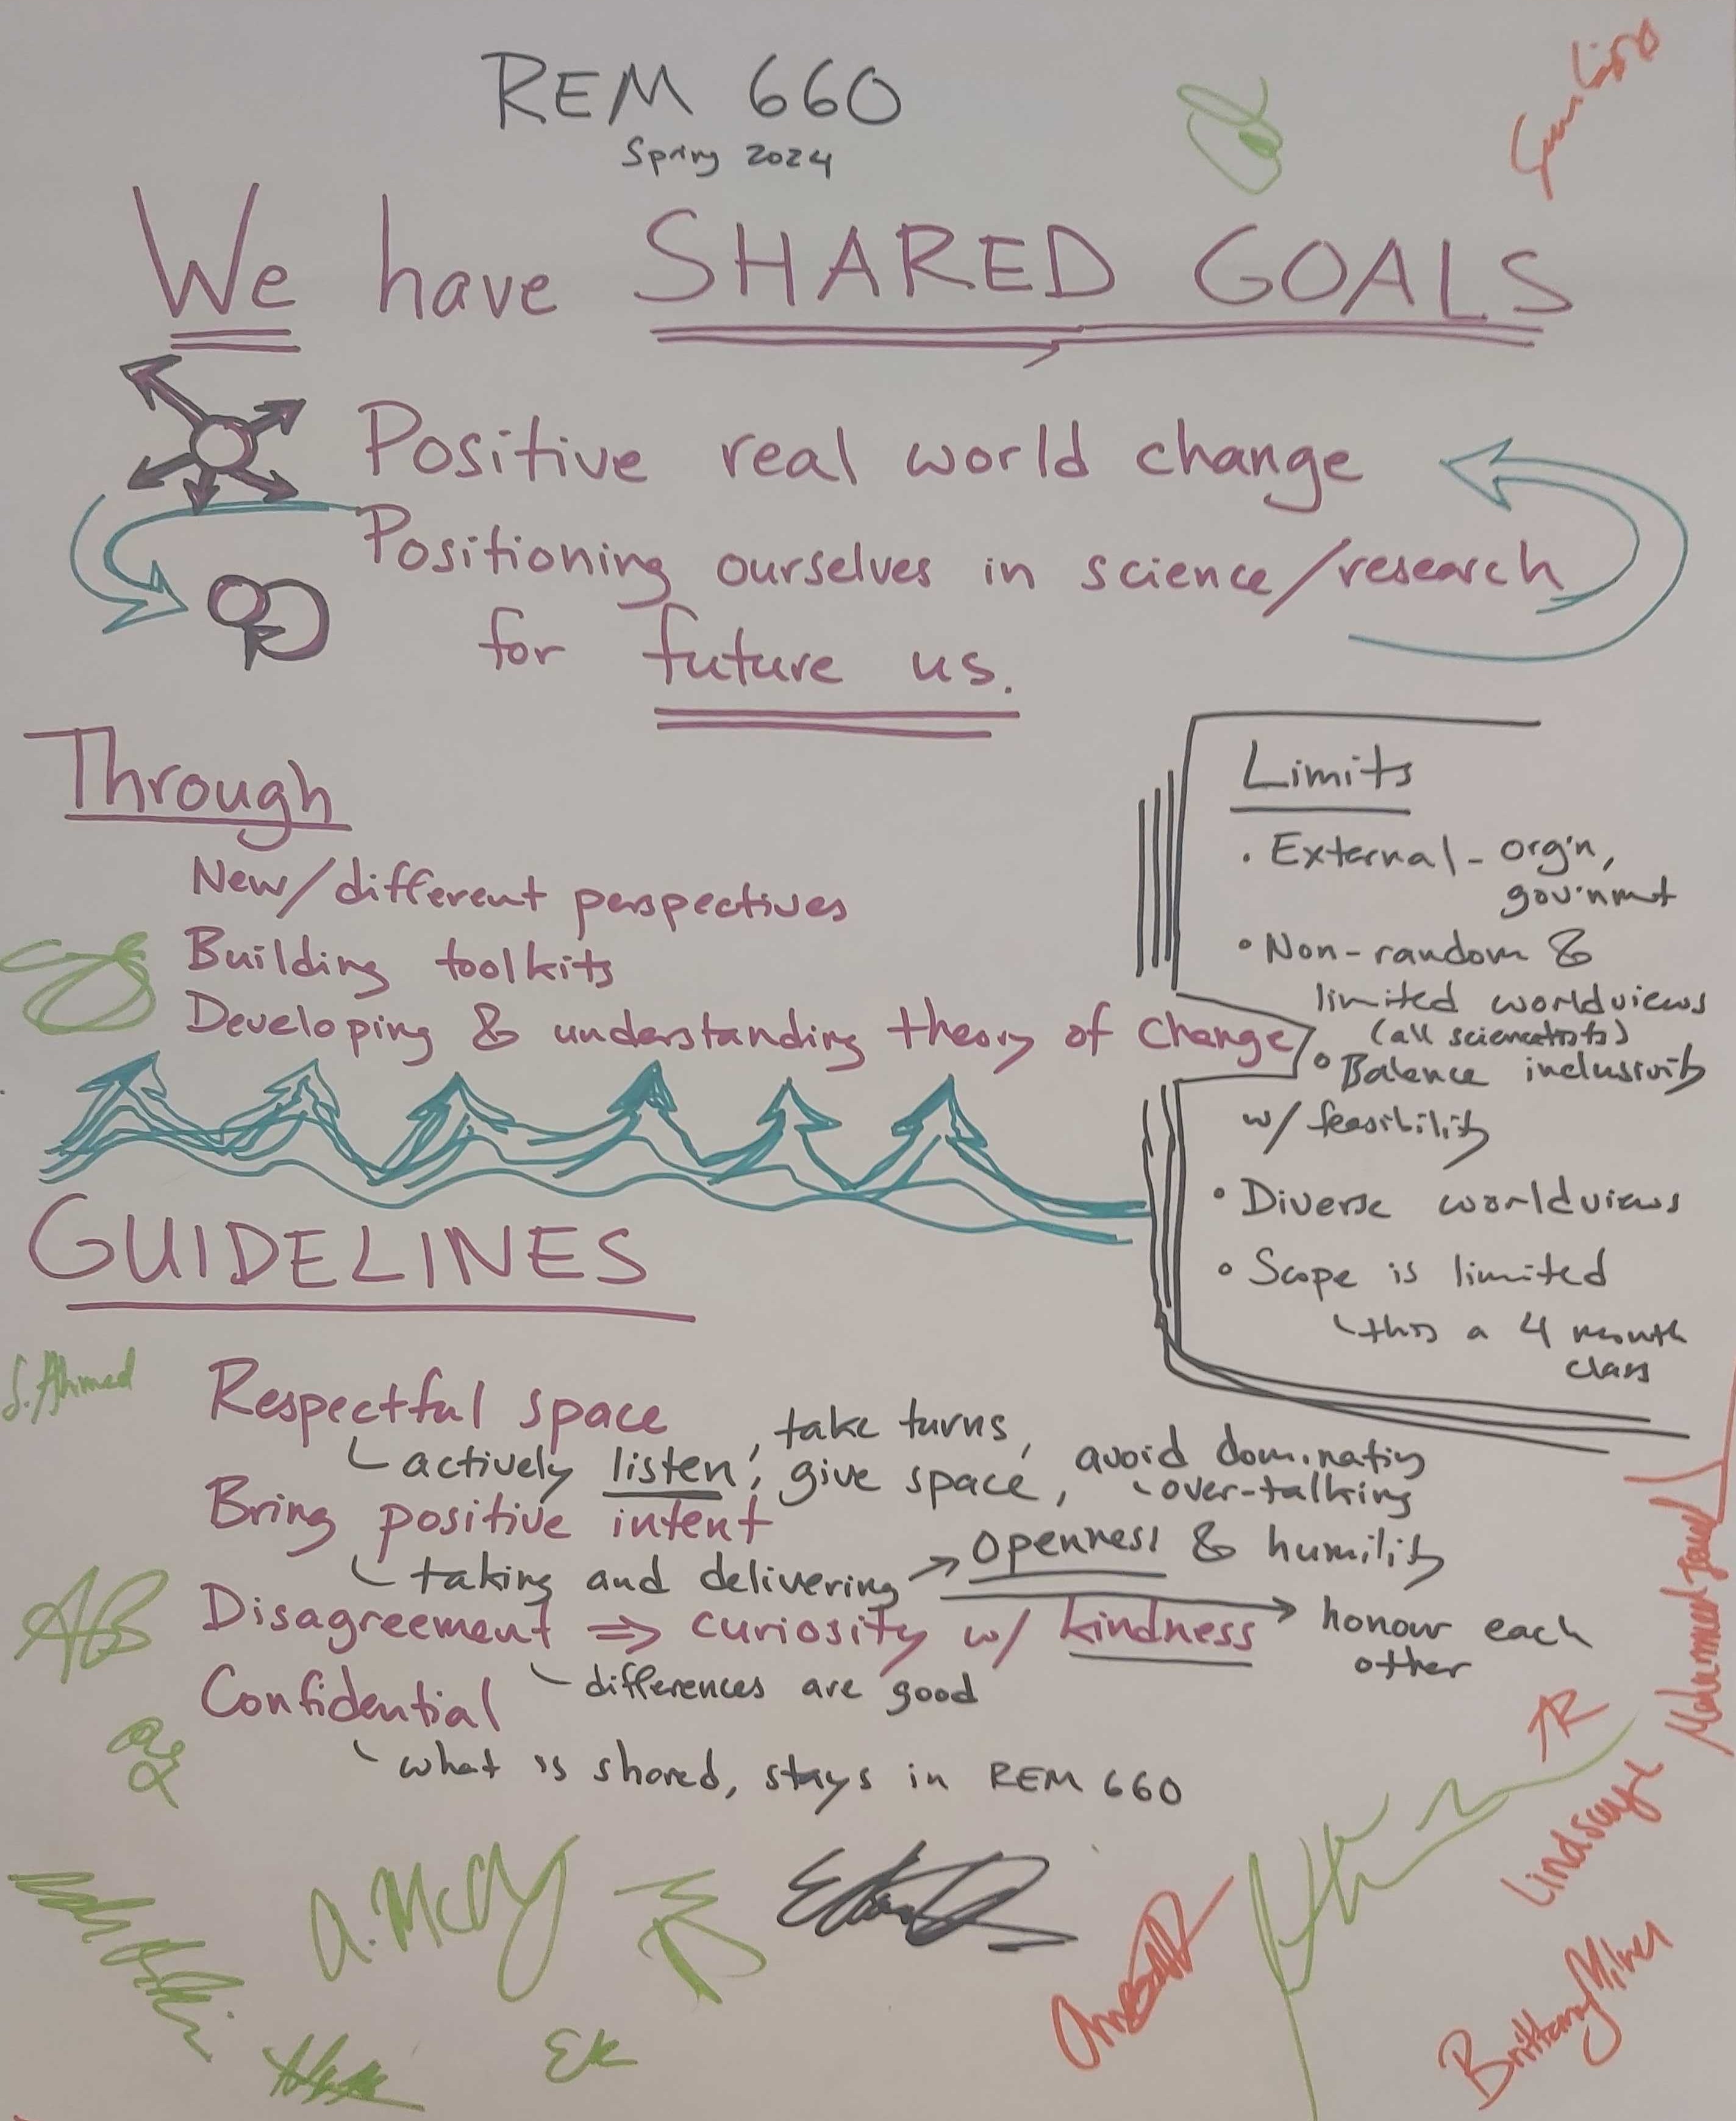 REM 660
Spring 2024
We have SHARED GOALS
Positive real world change
Positioning ourselves in science/research
for future us.
Through
New/different perspectives
Building toolkits
Developing & understanding theory of change
Limits
• External - org'n,
gov'nmt
• Non-random & 
limited worldviews
(all scienctists)
• Balance inclusivity
w/ feasibility
• Diverse worldviews
• Scope is limited
this a 4 month
class
GUIDELINES
Respectful space
actively listen, take turns,
give space, avoid dominating
over-talking
Bring positive intent
taking and delivering → openness & humility
→ honour each
other
Disagreement ⇒ curiosity w/ kindness
differences are good
Confidential
what is shared, stays in REM 660
S. Ahmed
AB
A. McCoy
EK
AR
Lindsaye
Brittany Milner